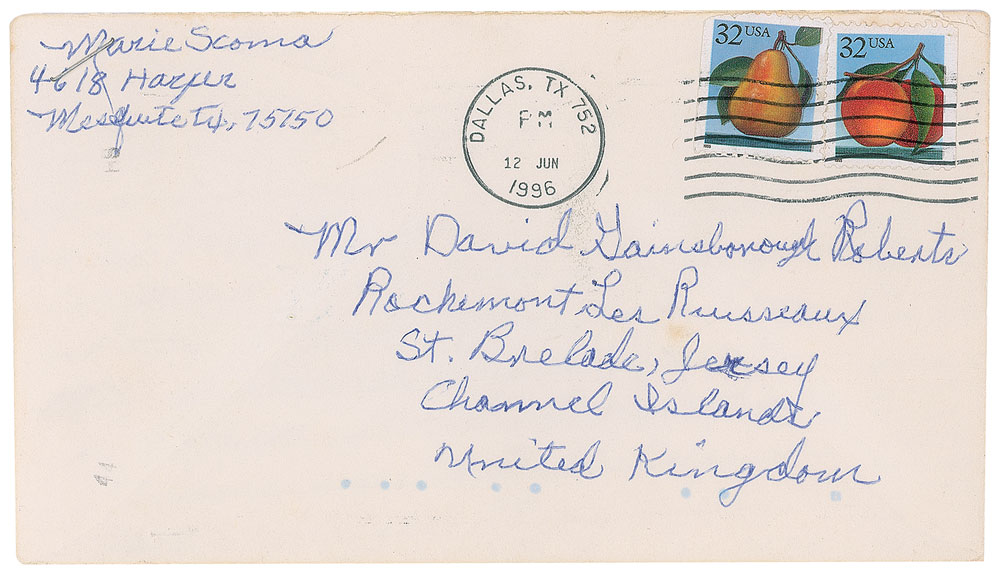 Marie Scoma
4618 Harper
Mesquite Tx, 75150
DALLAS, TX 752
PM
12 JUN
1996
32 USA
32 USA
Mr David Gainsborough Roberts
Rockemont Les Ruisseaux
St. Brelade, Jersey
Channel Islands
United Kingdom